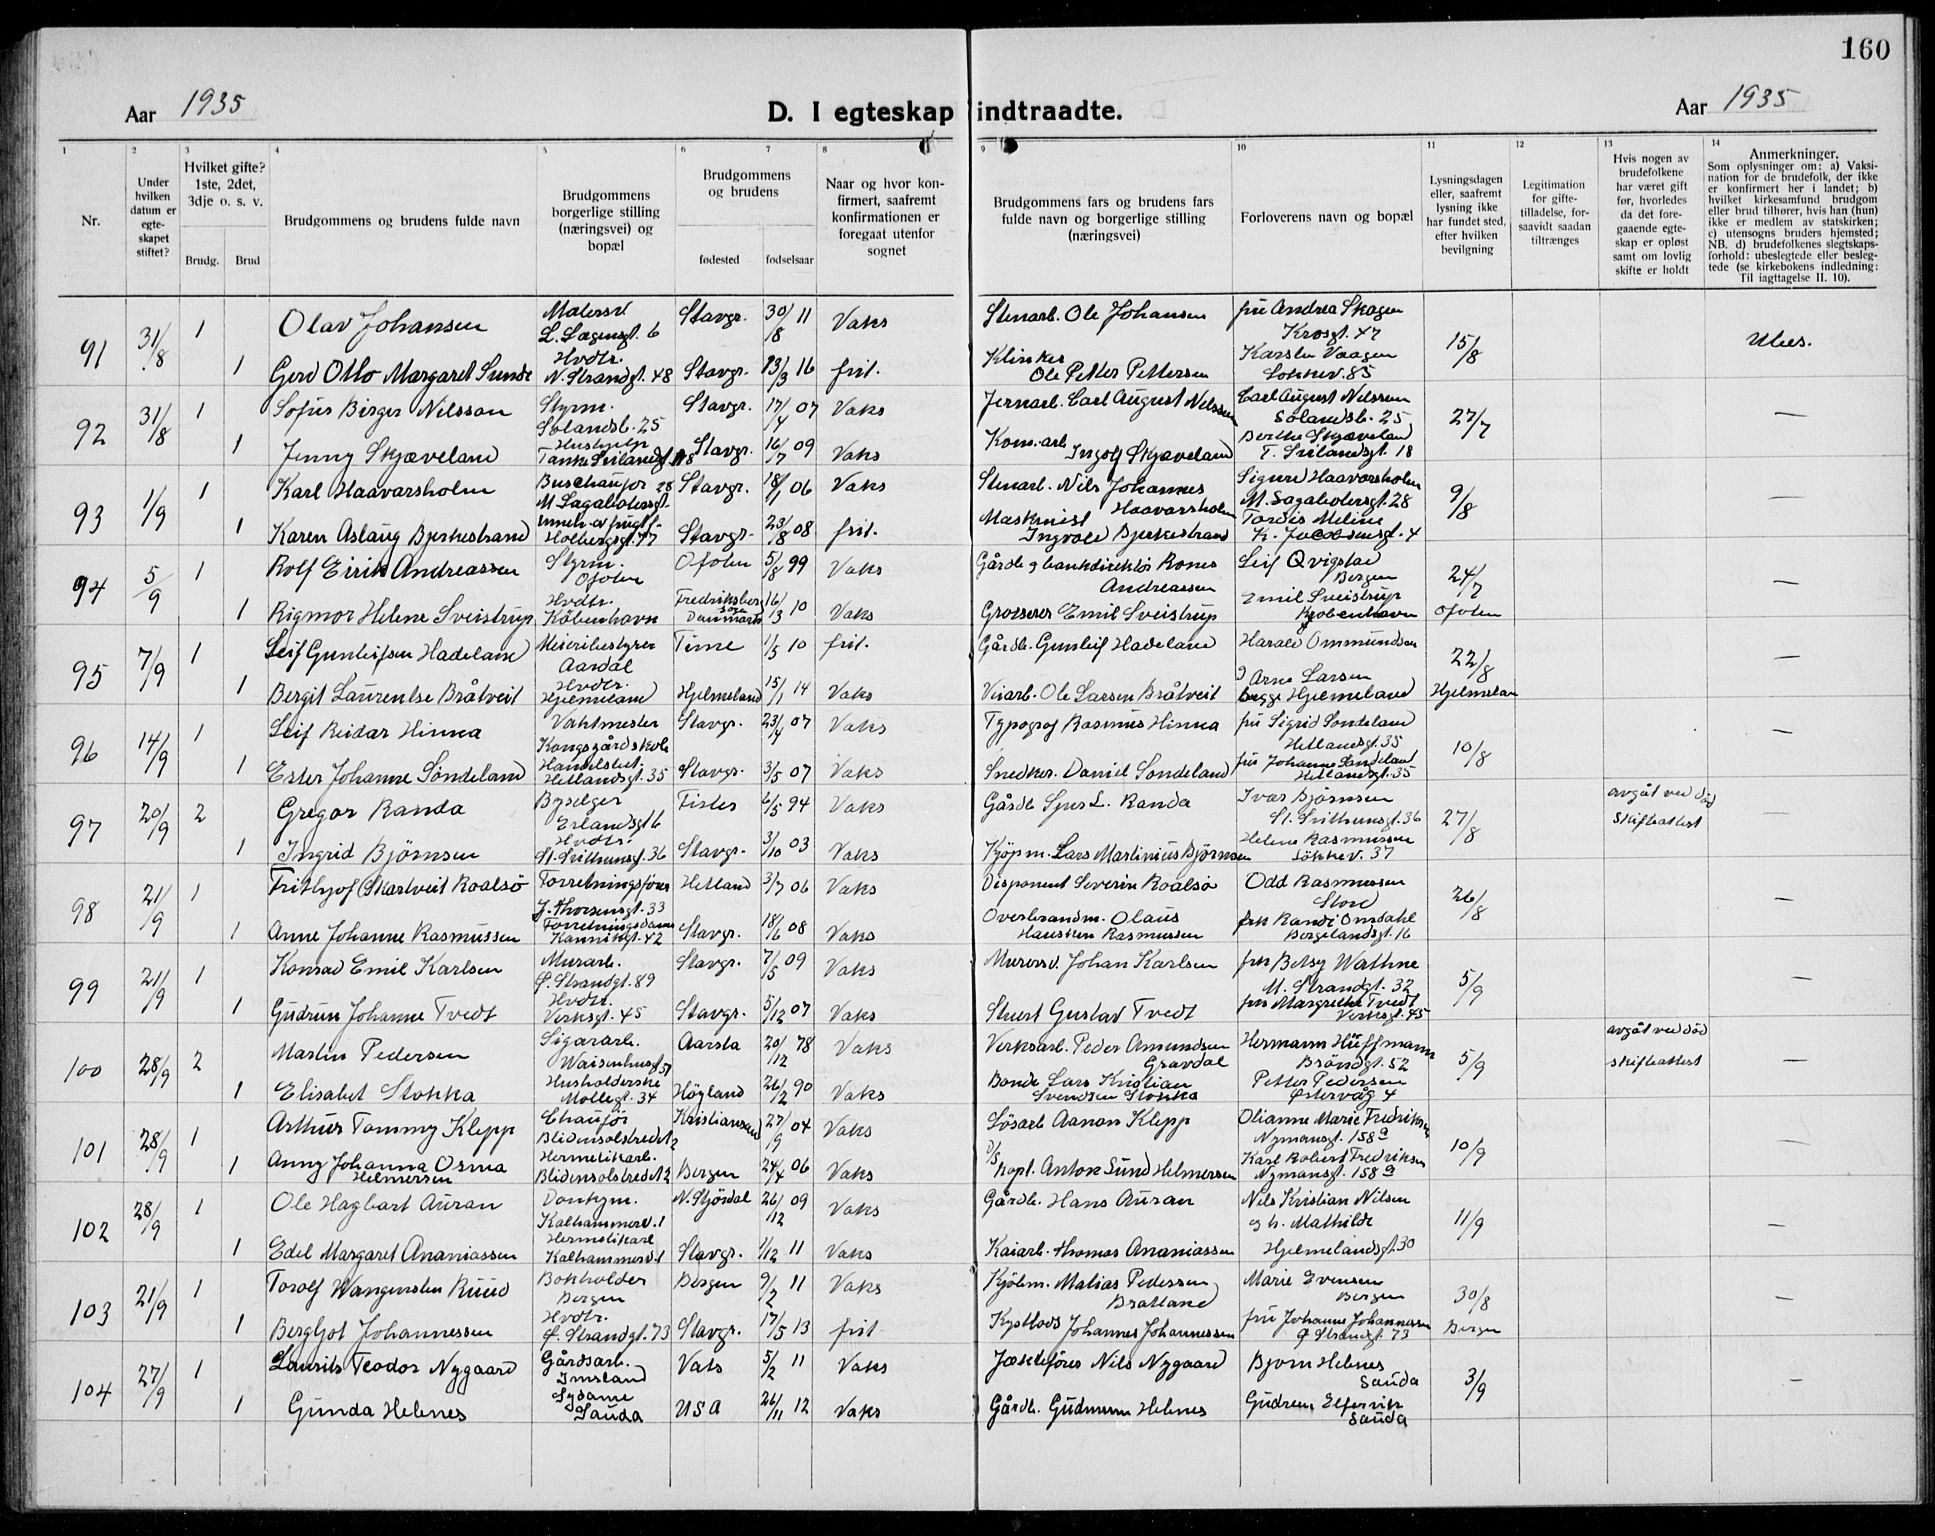 160
Aar 1935
D. I egteskap indtraadte.
Aar 1935
1 2 3 4 5 6 7 8 9 10 11 12 13 14
Nr.
Under hvilken datum er egteskapet stiftet?
Hvilket gifte? 1ste, 2det, 3dje o. s. v.
Brudg. Brud
Brudgommens og brudens fulde navn
Brudgommens borgerlige stilling (næringsvei) og bopæl
Brudgommens og brudens
fødested fødselsaar
Naar og hvor konfirmert, saafremt konfirmationen er foregaat utenfor sognet
Brudgommens fars og brudens fars fulde navn og borgerlige stilling (næringsvei)
Forloverens navn og bopæl
Lysningsdagen eller, saafremt lysning ikke har fundet sted, efter hvilken bevilgning
Legitimation for giftetilladelse, forsaavidt saadan tiltrænges
Hvis nogen av brudefolkene har været gift før, hvorledes da det foregaaende egteskap er opløst samt om lovlig skifte er holdt
Anmerkninger.
Som oplysninger om: a) Vaksination for de brudefolk, der ikke er konfirmert her i landet; b) hvilket kirkesamfund brudgom eller brud tilhører, hvis han (hun) ikke er medlem av statskirken; c) utensogns bruders hjemsted; NB. d) brudefolkenes slegtskapsforhold: ubeslegtede eller beslegtede (se kirkebokens indledning: Til iagttagelse II. 10).
91 31/8 1 Olav Johansen Malersv. L. Sagensgt. 6 Stavgr. 30/8 11 Vaks Stenarb. Ole Johansen fru Andrea Skagen Krosgt. 47 15/8 Ubes.
1 Gerd Otto Margaret Sunde Hvdtr. N. Strandgt. 48 Stavgr. 13/3 16 frit. Klinker Ole Petter Pettersen Karsten Vaagen Sokkev. 85
92 31/8 1 Sofus Birger Nilsson Styrm. Solandsb. 25 Stavgr. 17/4 07 Vaks Jernarb. Carl August Nilssen Carl August Nilssen Solandsb. 25 27/7 —
1 Jenny Skjæveland Hushjelp Tanke Svilandsgt. 18 Stavgr. 16/7 09 Vaks Kom. arb. Ingolf Skjæveland Berthe Skjæveland T. Svilandsgt. 18
93 1/9 1 Karl Haavarsholm Buschaufør M. Lagabøtersgt. 28 Stavgr. 18/1 06 Vaks Stenarb. Nils Johannes Haavarsholm Sigurd Haavarsholm M. Lagabøtersgt. 28 9/8 —
1 Karen Aslaug Bjerkestrand Holbergsgt. 47 Stavgr. 23/8 08 frit. Maskinist Ingvald Bjerkestrand Tordis Meline K. Jacobsensgt. 4
94 5/9 1 Rolf Eirik Andreassen Styrm. Ofoten Ofoten 5/8 99 Vaks Gårdb. og bankdirektør Rones Andreassen Leif Qvigstad Bergen 24/7 —
1 Rigmor Helene Sveistrup Hvdtr. København Fredriksberg sogn Danmark 16/3 10 Vaks Grosserer Emil Sveistrup Emil Sveistrup Kjøbenhavn Ofoten
95 7/9 1 Leif Gunleifsen Hadeland Meieribestyrer Aardal Time 1/5 10 frit. Gårdb. Gunleif Hadeland Harald Ommundsen 22/8 —
1 Bergit Laurentse Bråtveit Hvdtr. Hjelmeland Hjelmeland 15/1 14 Vaks Veiarb. Ole Larsen Bråtveit og Arne Larsen begge Hjelmeland Hjelmelan
96 14/9 1 Leif Reidar Hinna Vaktmester Kongsgård skole Stavgr. 23/4 07 Vaks Typograf Rasmus Hinna fru Sigrid Søndeland Hetlandsgt. 35 10/8 —
1 Ester Johanne Søndeland Handelsbet. Hetlandsgt. 35 Stavgr. 3/5 07 Vaks Snedker. Daniel Søndeland fru Johanne Søndeland Hetlandsgt. 35
97 20/9 2 Gregor Randa Byselger Erlandsgt 6 Fister 6/5 94 Vaks Gårdb. L. Randa Ivar Bjørnsen St. Svithunsgt. 36 27/8 avgåt ved død skifteattest —
1 Ingrid Bjørnsen Hvdtr. St. Svithunsgt. 36 Stavgr. 3/10 03 Vaks Kjøpm. Lars Martinius Bjørnsen Helene Rasmussen Søkkev. 37
98 21/9 1 Frithjof Skartveit Roalsø Forretningsfører J. Thorsensgt. 33 Hetland 3/7 06 Vaks Disponent Severin Roalsø Odd Rasmussen Stord 26/8 —
1 Anne Johanne Rasmussen Forretningsdame Kannikgt. 42 Stavgr. 18/6 08 Vaks Overbrandm. Olaus Hausken Rasmussen frk Randi Omdahl Bergelandsgt. 16
99 21/9 1 Konrad Emil Karlsen Murarb. Ø. Strandgt. 89 Stavgr. 7/5 09 Vaks Murersv. Johan Karlsen frk Betsy Wathne M. Strandgt. 32 5/9 —
1 Gudrun Johanne Tvedt Hvdtr. Verksgt. 45 Stavgr. 5/12 07 Vaks Stuert Gustav Tvedt fru Margrethe Tvedt Verksgt. 45
100 28/9 2 Martin Pedersen Sigararb. Waisenhusgt. 51 Aarsta 20/12 78 Vaks Verksarb. Peder Amundsen Gravdal Hermann Hüffmann Brøndgt. 52 5/9 avgåt ved død skifteattest —
1 Elisabet Stokka Husholderske Møllegt. 34 Høyland 26/2 90 Vaks Bonde Lars Kristian Svendsen Stokka Petter Pedersen Østervåg 4
101 28/9 1 Arthur Tommy Klepp Chaufør Blidensolstredet 2 Kristiansand 27/9 04 Vaks Løsarb Aanon Klepp Olianne Marie Fredriksen Nymansgt. 158a 10/9 —
1 Anny Johanna Osma Helmersen Hermetikarb. Blidensolstredet 2 Bergen 24/4 06 Vaks D/S Kapt. Anton Sund Helmersen Karl Robert Fredriksen Nymansgt. 158a
102 28/9 1 Ole Hagbart Auran Donkym. Kalhammerv. 1 N. Stjördal 26/12 09 Vaks Gårdb. Hans Auran Nils Kristian Nilsen og h. Mathilde 11/9 —
1 Edel Margaret Ananiassen Hermetikarb Kalhammerv. 1 Stavgr. 1/12 11 Vaks Kaiarb. Thomas Ananiassen Hjelmelandsgt. 30
103 21/9 1 Torolf Wangensten Ruud Bokholder Bergen Bergen 9/2 11 Vaks Kjøbm. Matias Pedersen Bratland Marie Evensen Bergen 30/8 —
1 Bergljot Johannessen Hvdtr. Ø. Strandgt. 73 Stavgr. 17/5 13 frit Kystlods Johannes Johannessen fru Johanne Johannessen Ø Strandgt. 73 Bergen
104 27/9 1 Laurits Teodor Nygaard Gårdsarb. Imsland Vats 5/2 11 Vaks Jækteforer Nils Nygaard Bjørn Helnes Sauda 3/9 —
1 Gunda Helnes Sydame Sauda USA 26/11 12 Vaks Gårdb. Gudmunn Helnes Gudrun Sauda